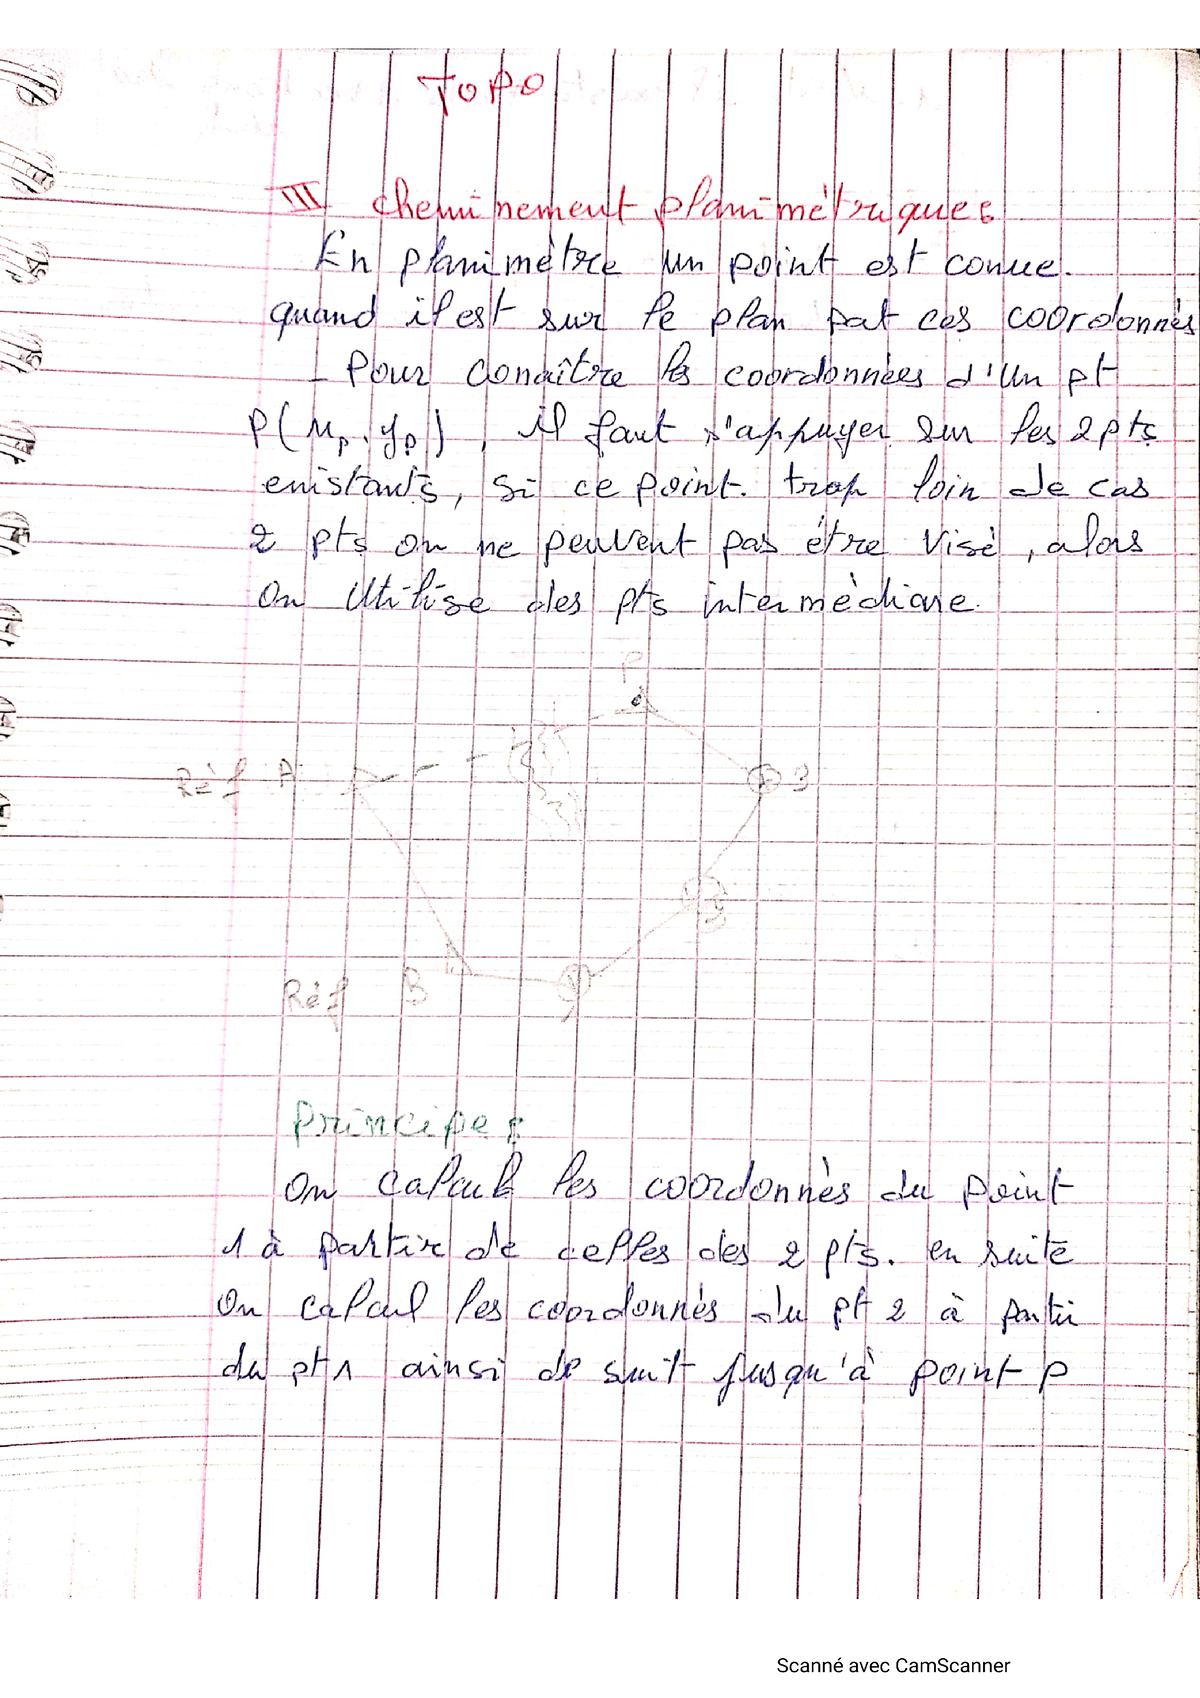 TOPO
III cheminement planimètrique :
En planimètre un point est conue.
quand il est sur le plan pat ces coordonnès
- Pour conaître les coordonnèes d'un pt
P(xp, yp), il faut s'appuyer sur les 2 pts
existants, si ce point. trop loin de cas
2 pts ou ne peuvent pas être visè, alors
on utilise des pts intermèdiare.
P
Rèf A
3
2
Rèf B
1
Principe :
on calcule les coordonnès du point
1 à partir de celles des 2 pts. en suite
on calcul les coordonnès du pt 2 à partir
du pt 1 ainsi de suit jusqu'à point P
Scanné avec CamScanner